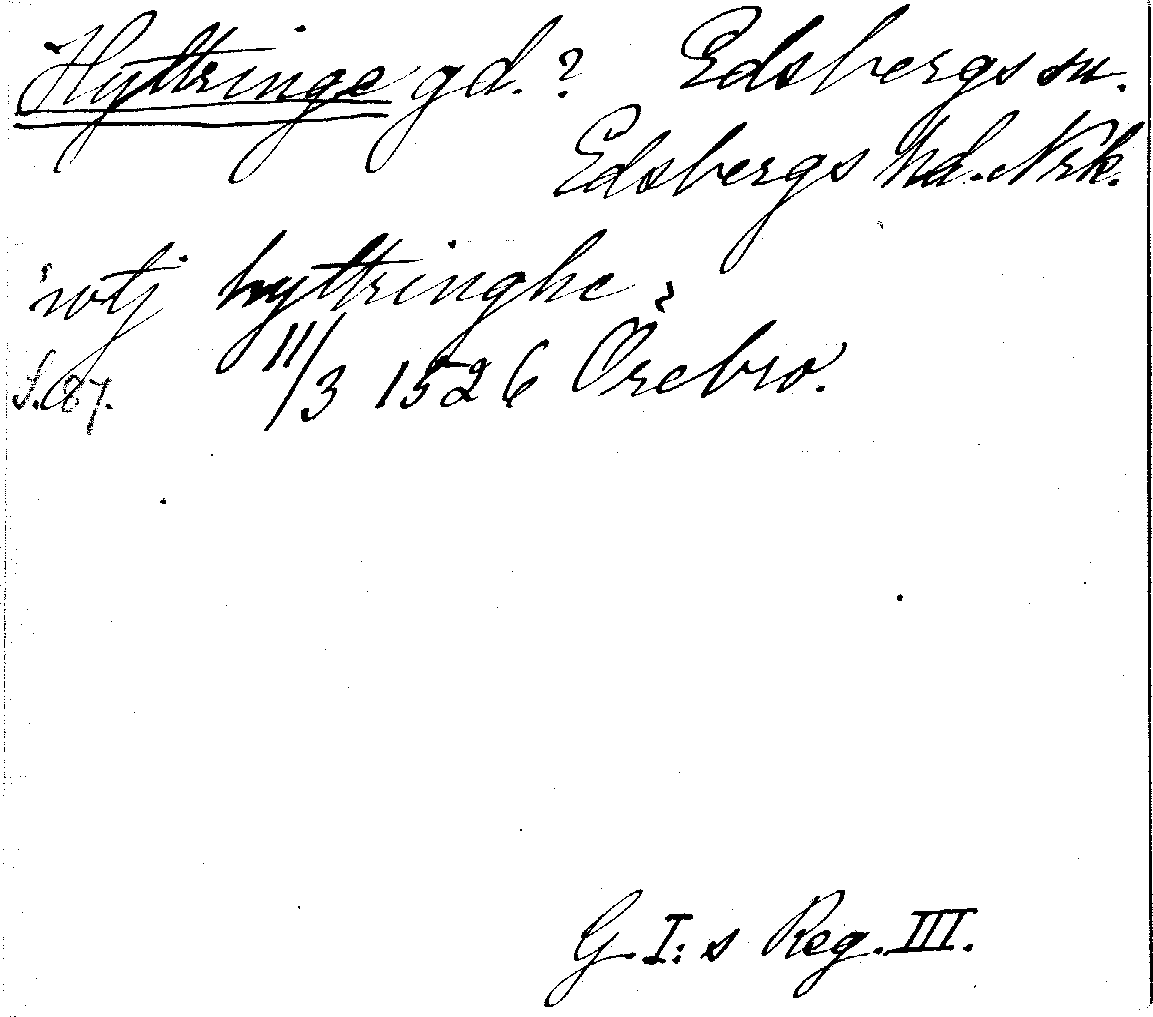 Hyttringe gd.? Edsbergs sn.
Edsbergs hd. Nrk.
'wtj hyttringhe,
S. 87. 11/3 1526 Örebro.
G. I:s Reg. III.